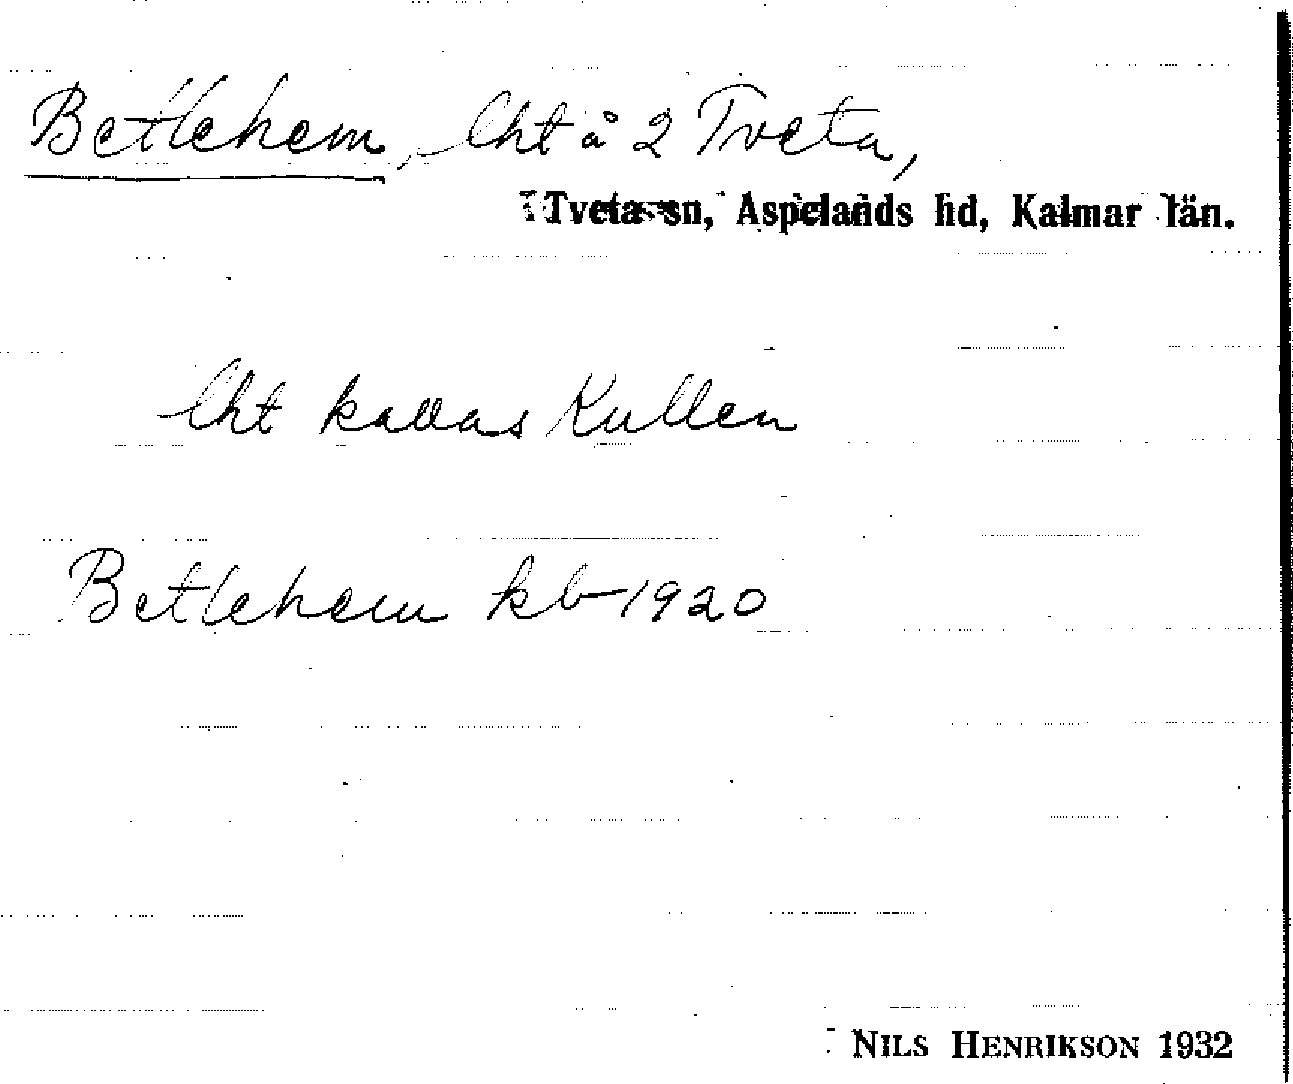 Betlehem, lht å 2 Tveta,
Tveta sn, Aspelands hd, Kalmar län.
lht kallas Kullen
Betlehem kb 1920
NILS HENRIKSON 1932